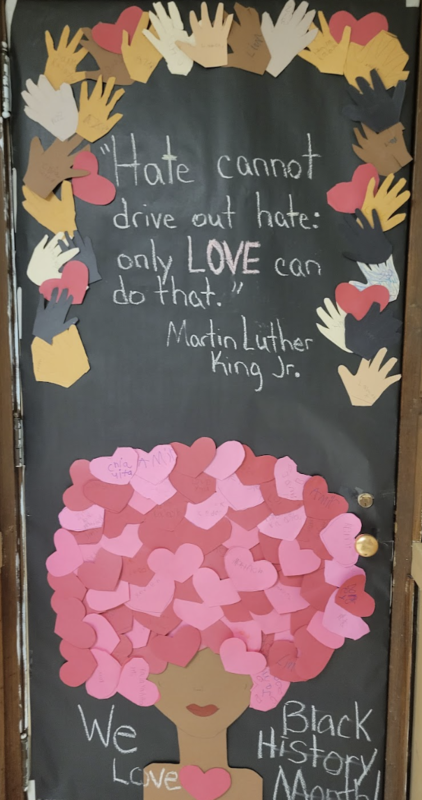 "Hate cannot
drive out hate:
only LOVE can
do that."
Martin Luther
King Jr.
We
Love
Black
History
Month!